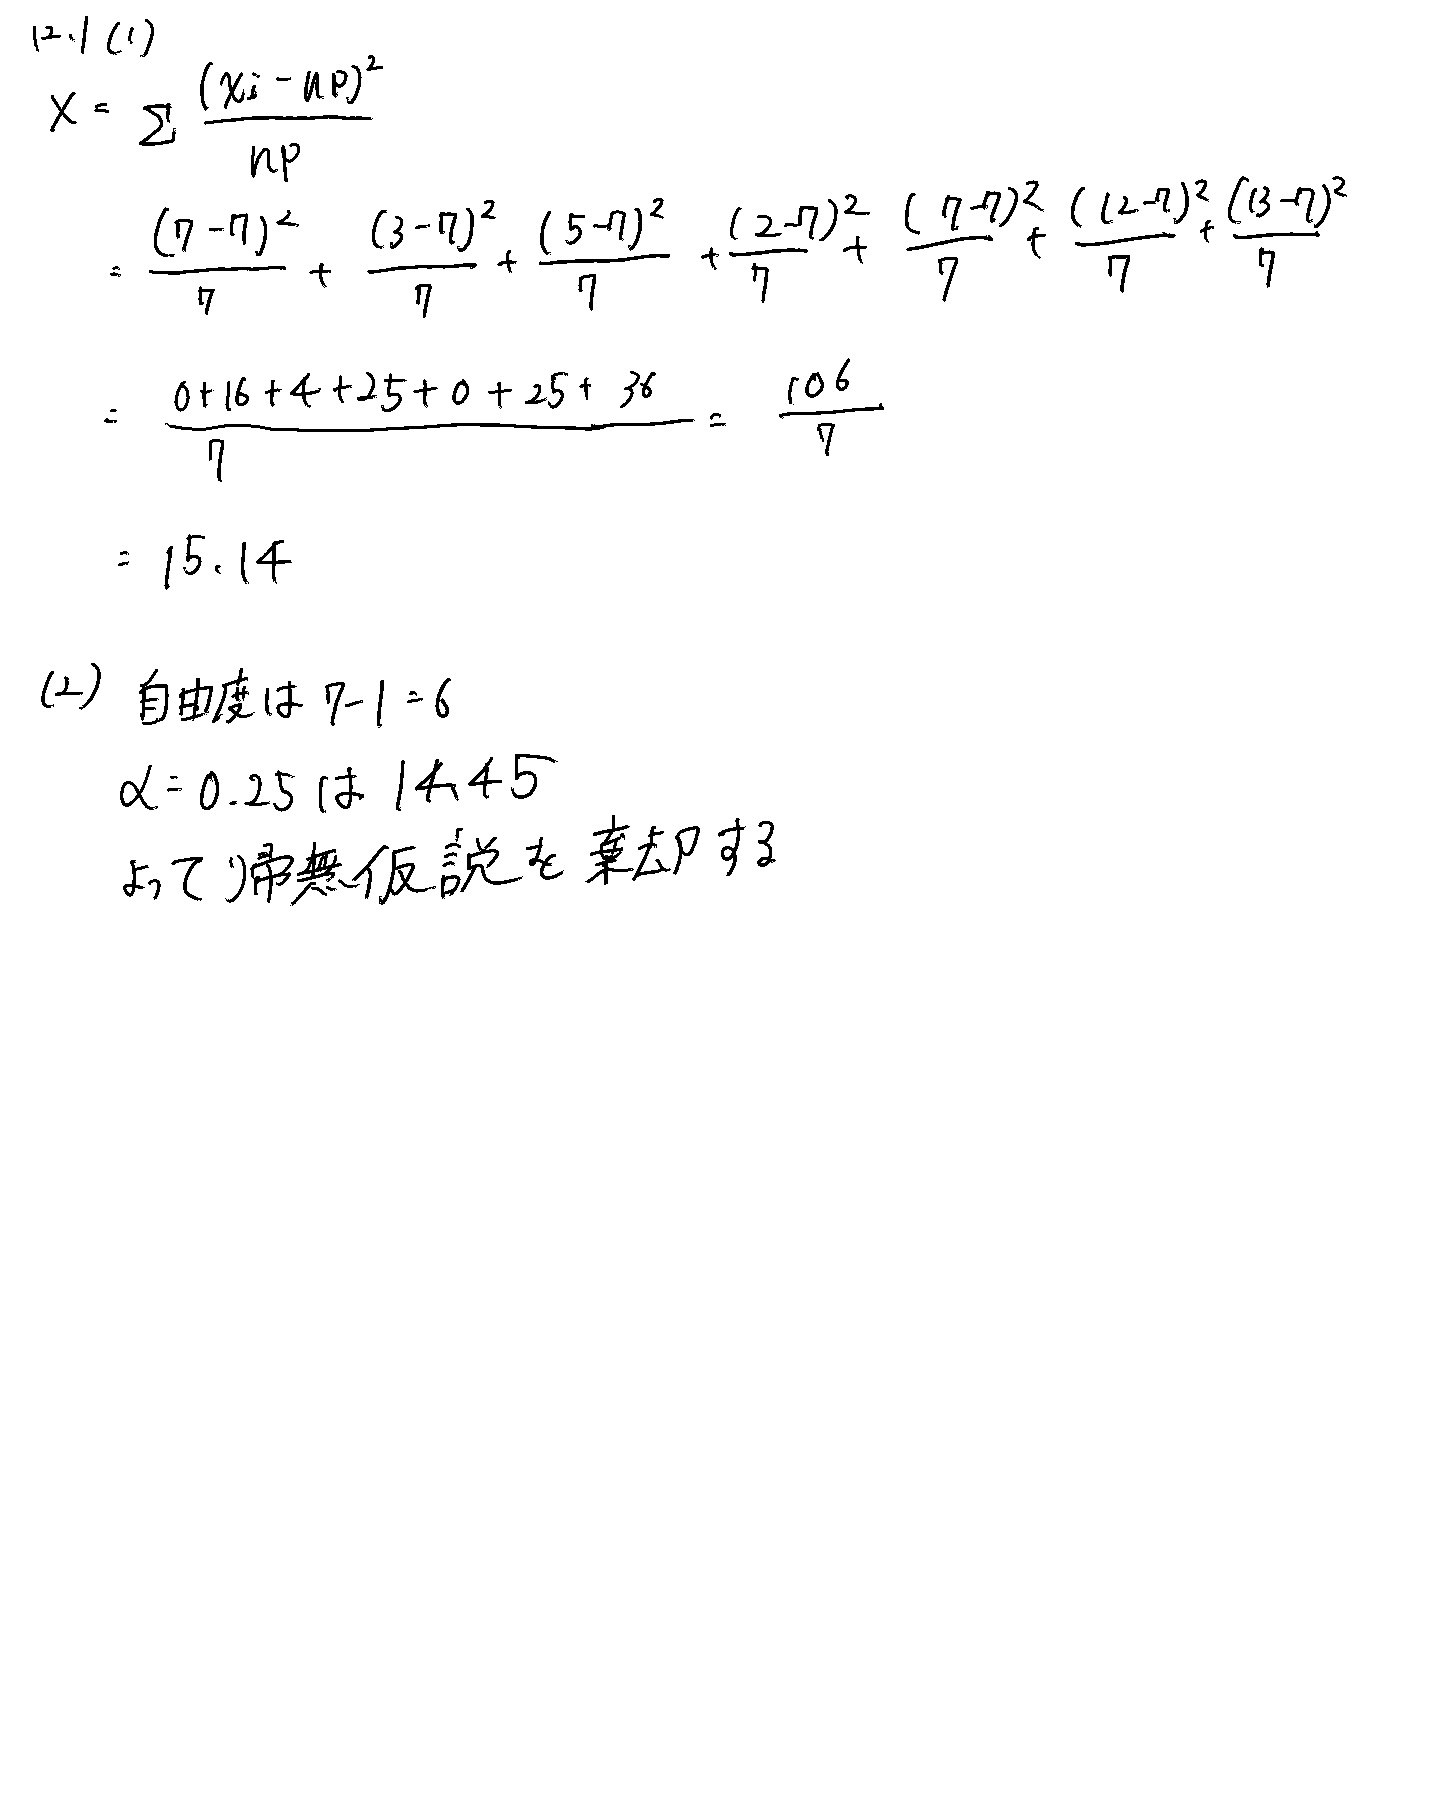 12.1 (1)
X = Σ (xi - np)² / np
= (7-7)²/7 + (3-7)²/7 + (5-7)²/7 + (2-7)²/7 + (7-7)²/7 + (12-7)²/7 + (13-7)²/7
= 0+16+4+25+0+25+36 / 7 = 106/7
= 15.14
(2) 自由度は 7-1=6
α=0.25は 14.45
よって帰無仮説を棄却する